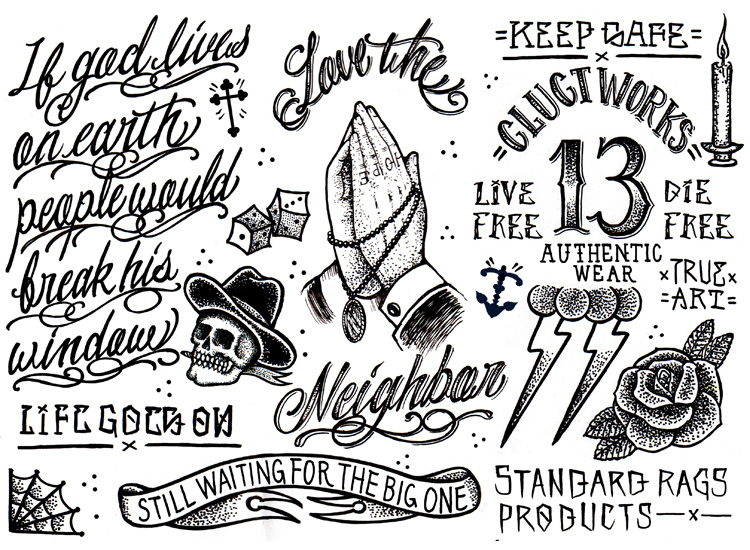 If god lives
on earth
people would
break his
window
LIFE GOES ON
Love the
Neighbor
HOPE
STILL WAITING FOR THE BIG ONE
=KEEP SAFE=
x
"CLUCT WORKS"
13
LIVE
FREE
DIE
FREE
AUTHENTIC
WEAR
xTRUEx
=ART=
STANDARD RAGS
PRODUCTS—x—